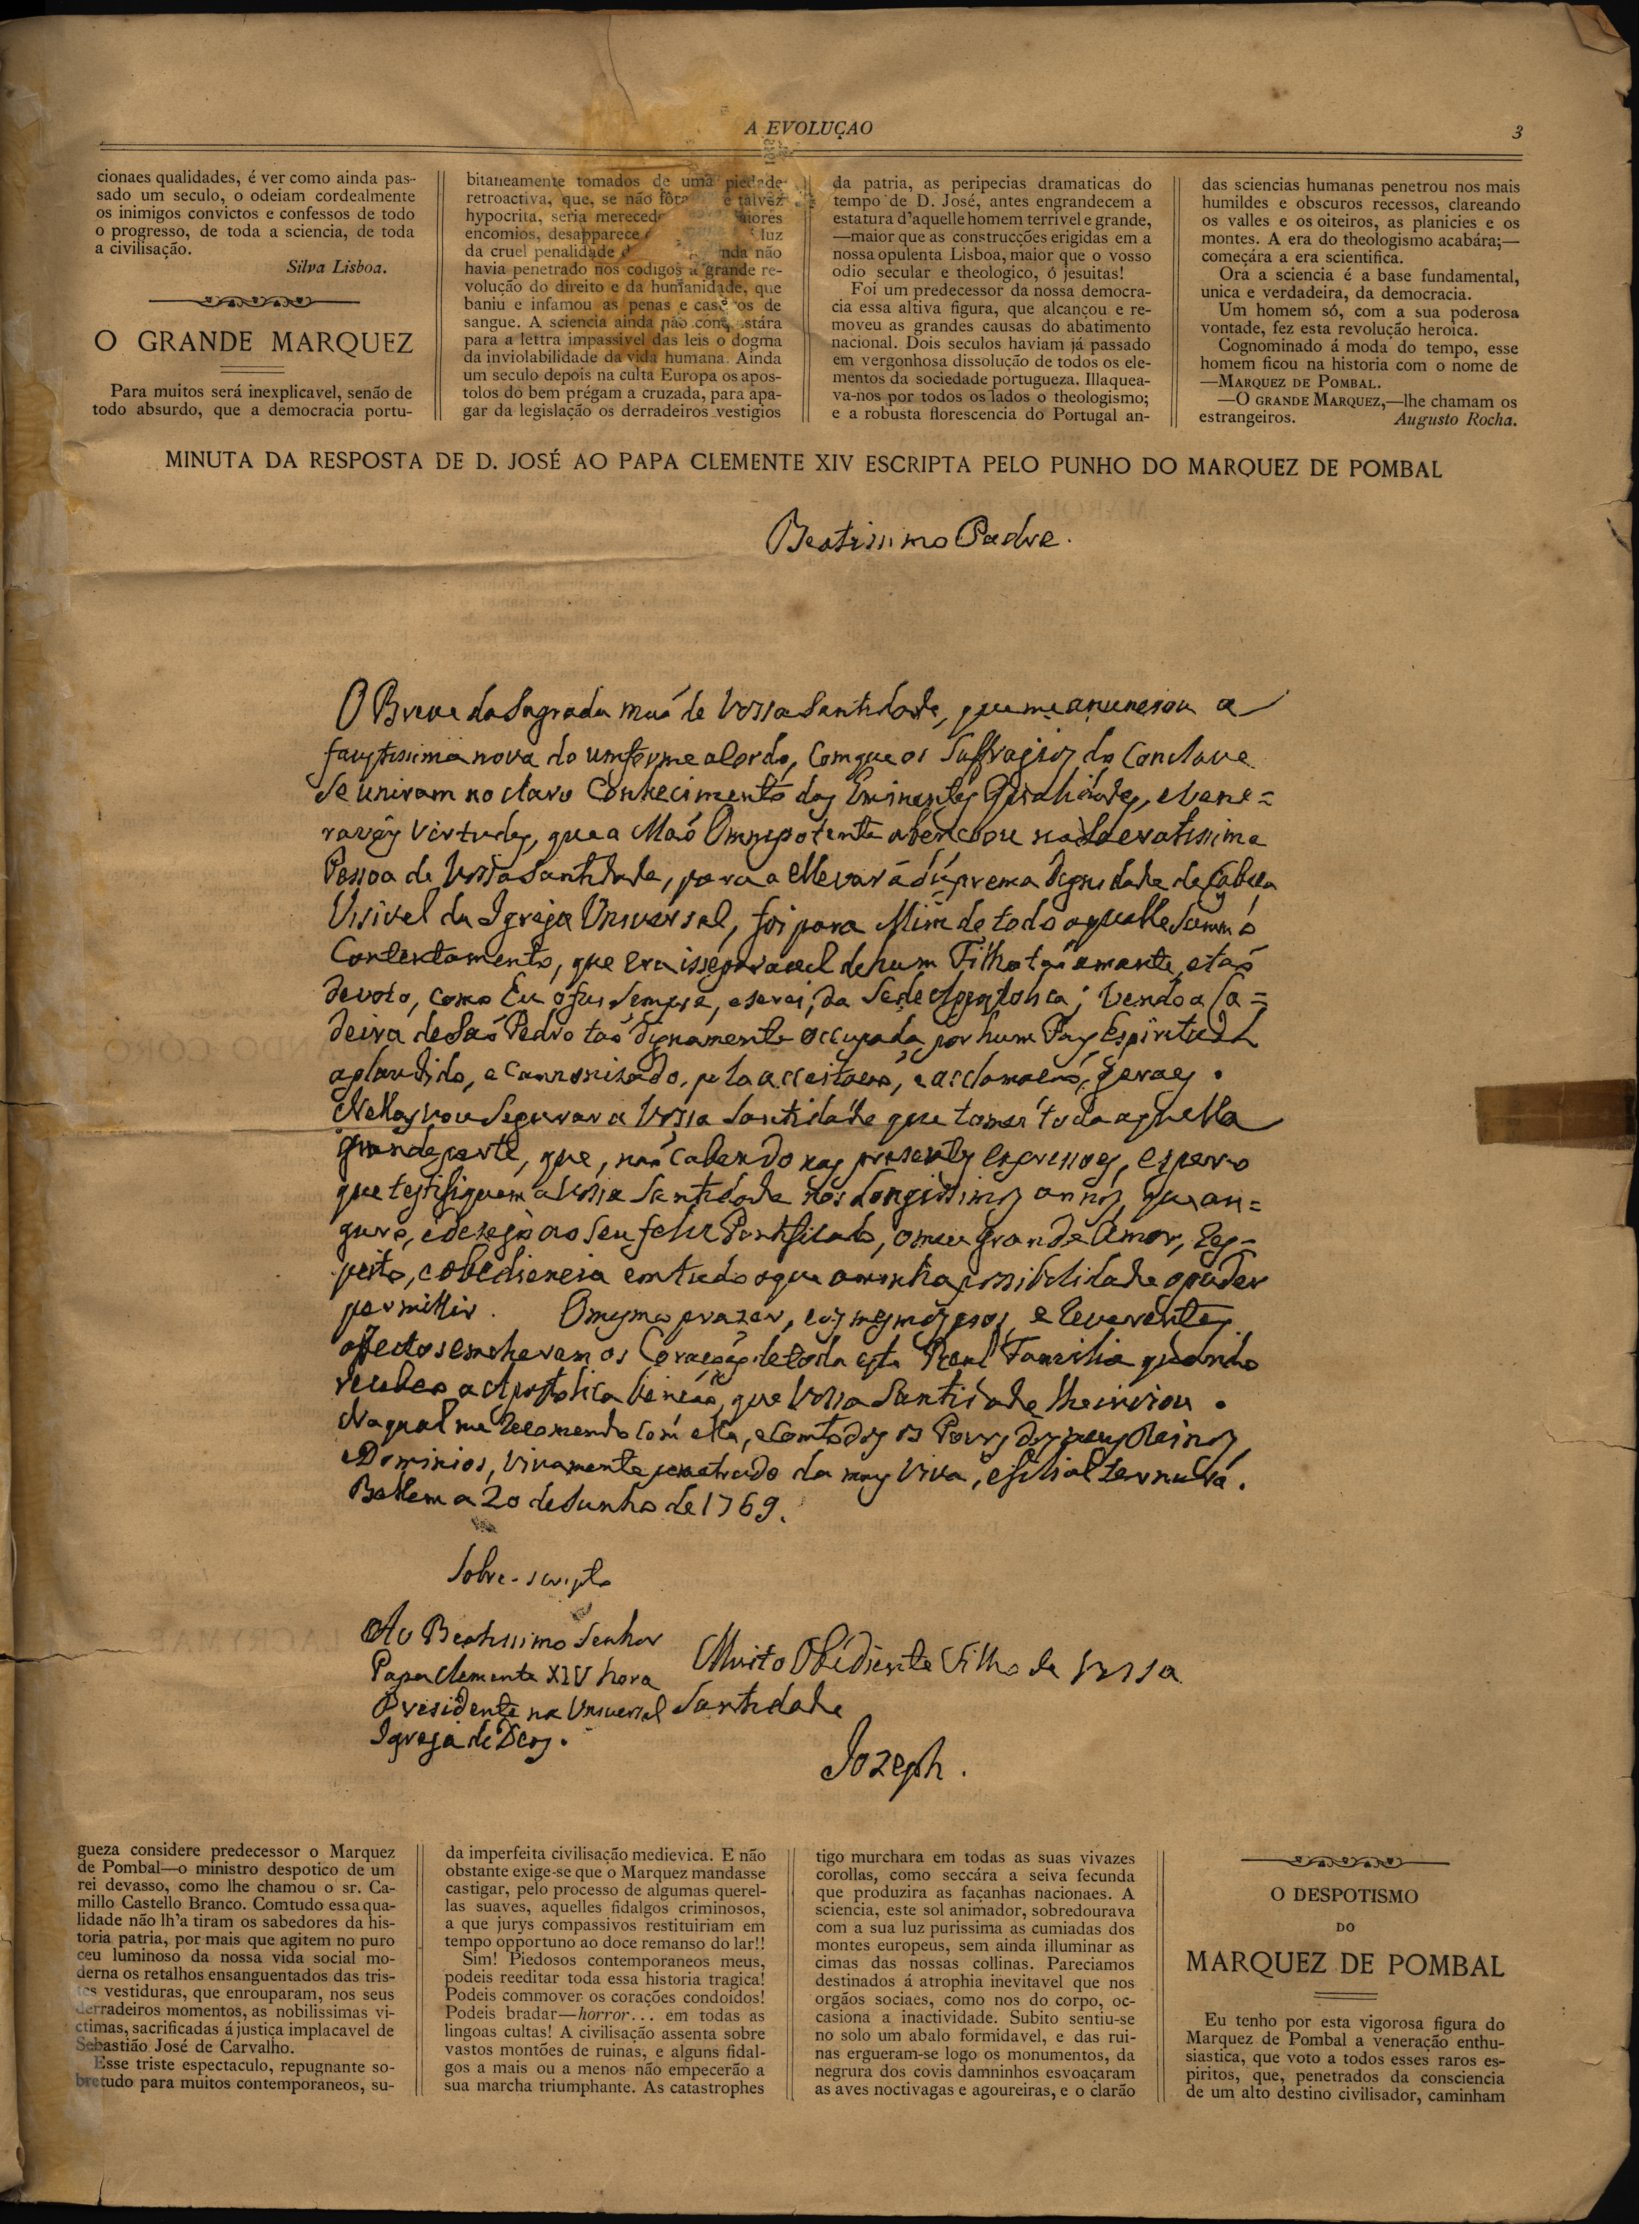 A EVOLUÇAO
3
cionaes qualidades, é ver como ainda pas-
sado um seculo, o odeiam cordealmente
os inimigos convictos e confessos de todo
o progresso, de toda a sciencia, de toda
a civilisação.
Silva Lisboa.
O GRANDE MARQUEZ
Para muitos será inexplicavel, senão de
todo absurdo, que a democracia portu-
bitaneamente tomados de uma piedade
retroactiva, que, se não fôra e talvez
hypocrita, seria
encomios, desapparece luz
da cruel penalidade não
havia penetrado nos codigos a grande re-
volução do direito e da humanidade, que
baniu e infamou as penas e de
sangue. A sciencia ainda não
para a lettra impassivel das leis o dogma
da inviolabilidade da vida humana. Ainda
um seculo depois na culta Europa os apos-
tolos do bem prégam a cruzada, para apa-
gar da legislação os derradeiros vestigios
da patria, as peripecias dramaticas do
tempo de D. José, antes engrandecem a
estatura d'aquelle homem terrivel e grande,
—maior que as construcções erigidas em a
nossa opulenta Lisboa, maior que o vosso
odio secular e theologico, ó jesuitas!
Foi um predecessor da nossa democra-
cia essa altiva figura, que alcançou e re-
moveu as grandes causas do abatimento
nacional. Dois seculos haviam já passado
em vergonhosa dissolução de todos os ele-
mentos da sociedade portugueza. Illaquea-
va-nos por todos os lados o theologismo;
e a robusta florescencia do Portugal an-
das sciencias humanas penetrou nos mais
humildes e obscuros recessos, clareando
os valles e os oiteiros, as planicies e os
montes. A era do theologismo acabára;—
começára a era scientifica.
Ora a sciencia é a base fundamental,
unica e verdadeira, da democracia.
Um homem só, com a sua poderosa
vontade, fez esta revolução heroica.
Cognominado á moda do tempo, esse
homem ficou na historia com o nome de
—MARQUEZ DE POMBAL.
—O GRANDE MARQUEZ,—lhe chamam os
estrangeiros. Augusto Rocha.
MINUTA DA RESPOSTA DE D. JOSÉ AO PAPA CLEMENTE XIV ESCRIPTA PELO PUNHO DO MARQUEZ DE POMBAL
Beatissimo Padre.
O Breve da Sagrada maõ de Vossa Santidade, que me anunciou a
faustissima nova do uniforme acordo, com que os Suffragios do Conclave
se uniram no claro Conhecimento das Eminentes Qualidades, e Vene=
raveis Virtudes, que a Maõ Omnipotente abençoou na Sacratissima
Pessoa de Vossa Santidade, para a ellevar á Suprema Dignidade de Cabeça
Visivel da Igreja Universal, foi para Mim de todo aquelle Summo
Contentamento, que era isseparavel de hum Filho taõ amante, e taõ
devoto, como Eu o fui sempre, e serei, da Sede Apostolica; Vendo a Ca=
deira de Saõ Pedro taõ dignamente occupada por hum Pay Espiritual
aplaudido, e Cannonizado, pela acceitaçaõ, e acclamaçaõ, geraes.
Nellas vou Segurar a Vossa Santidade que tomei toda aquella
grande parte, que, naõ cabendo nas presentes expressoes, espero
que testifiquem a Vossa Santidade nos Longissimos annos, que au=
guro, e dezejo ao seu feliz Pontificado, o meu grande Amor, Res=
peito, e obediencia em tudo o que a minha possibilidade o puder
permittir. O mesmo prazer, e os mesmos pios, e Reverentes
affectos encheram os Coraçoẽs de toda esta Real Familia quando
recebeo a Apostolica bençaõ, que Vossa Santidade lhe inviou.
Na qual me Recomendo com ella, e com todos os Povos dos meus Reinos,
e Dominios, Vivamente penetrado da mais Viva, e filial ternura.
Bellem a 20 de Junho de 1769.
Sobre-scripto
Ao Beatissimo Senhor
Papa Clemente XIV hora
Presidente na Universal
Igreja de Deos.
Muito Obediente Filho de Vossa
Santidade
Jozeph.
gueza considere predecessor o Marquez
de Pombal—o ministro despotico de um
rei devasso, como lhe chamou o sr. Ca-
millo Castello Branco. Comtudo essa qua-
lidade não lh'a tiram os sabedores da his-
toria patria, por mais que agitem no puro
ceu luminoso da nossa vida social mo-
derna os retalhos ensanguentados das tris-
tes vestiduras, que enrouparam, nos seus
derradeiros momentos, as nobilissimas vi-
ctimas, sacrificadas á justiça implacavel de
Sebastião José de Carvalho.
Esse triste espectaculo, repugnante so-
bretudo para muitos contemporaneos, su-
da imperfeita civilisação medievica. E não
obstante exige-se que o Marquez mandasse
castigar, pelo processo de algumas querel-
las suaves, aquelles fidalgos criminosos,
a que jurys compassivos restituiriam em
tempo opportuno ao doce remanso do lar!!
Sim! Piedosos contemporaneos meus,
podeis reeditar toda essa historia tragica!
Podeis commover os corações condoidos!
Podeis bradar—horror... em todas as
lingoas cultas! A civilisação assenta sobre
vastos montões de ruinas, e alguns fidal-
gos a mais ou a menos não empecerão a
sua marcha triumphante. As catastrophes
tigo murchara em todas as suas vivazes
corollas, como seccára a seiva fecunda
que produzira as façanhas nacionaes. A
sciencia, este sol animador, sobredourava
com a sua luz purissima as cumiadas dos
montes europeus, sem ainda illuminar as
cimas das nossas collinas. Pareciamos
destinados á atrophia inevitavel que nos
orgãos sociaes, como nos do corpo, oc-
casiona a inactividade. Subito sentiu-se
no solo um abalo formidavel, e das rui-
nas ergueram-se logo os monumentos, da
negrura dos covis damninhos esvoaçaram
as aves noctivagas e agoureiras, e o clarão
O DESPOTISMO
DO
MARQUEZ DE POMBAL
Eu tenho por esta vigorosa figura do
Marquez de Pombal a veneração enthu-
siastica, que voto a todos esses raros es-
piritos, que, penetrados da consciencia
de um alto destino civilisador, caminham